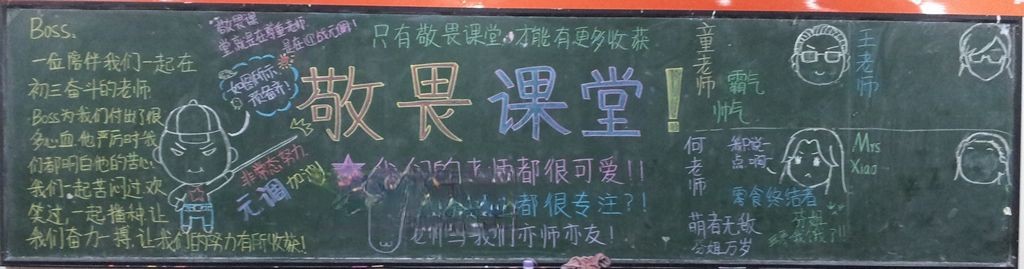 Boss:
一位陪伴我们一起在
初三奋斗的老师
Boss为我们付出了很
多心血,他严厉时我
们都明白他的苦心
我们一起苦闷过,欢
笑过,一起
我们奋力一搏,让我们的努力有所收获!
敬畏课
堂就是在尊重老师
如图所示,
只有敬畏课堂,才能有更多收获
敬畏课堂!
非常态努力
元调加油
我们的老师都很可爱!!
都很专注?!
老师与我们亦师亦友!
童老师
霸气
帅气
王老师
何老师
Mrs
Xiao
零食终结者
萌者无敌
公姐万岁